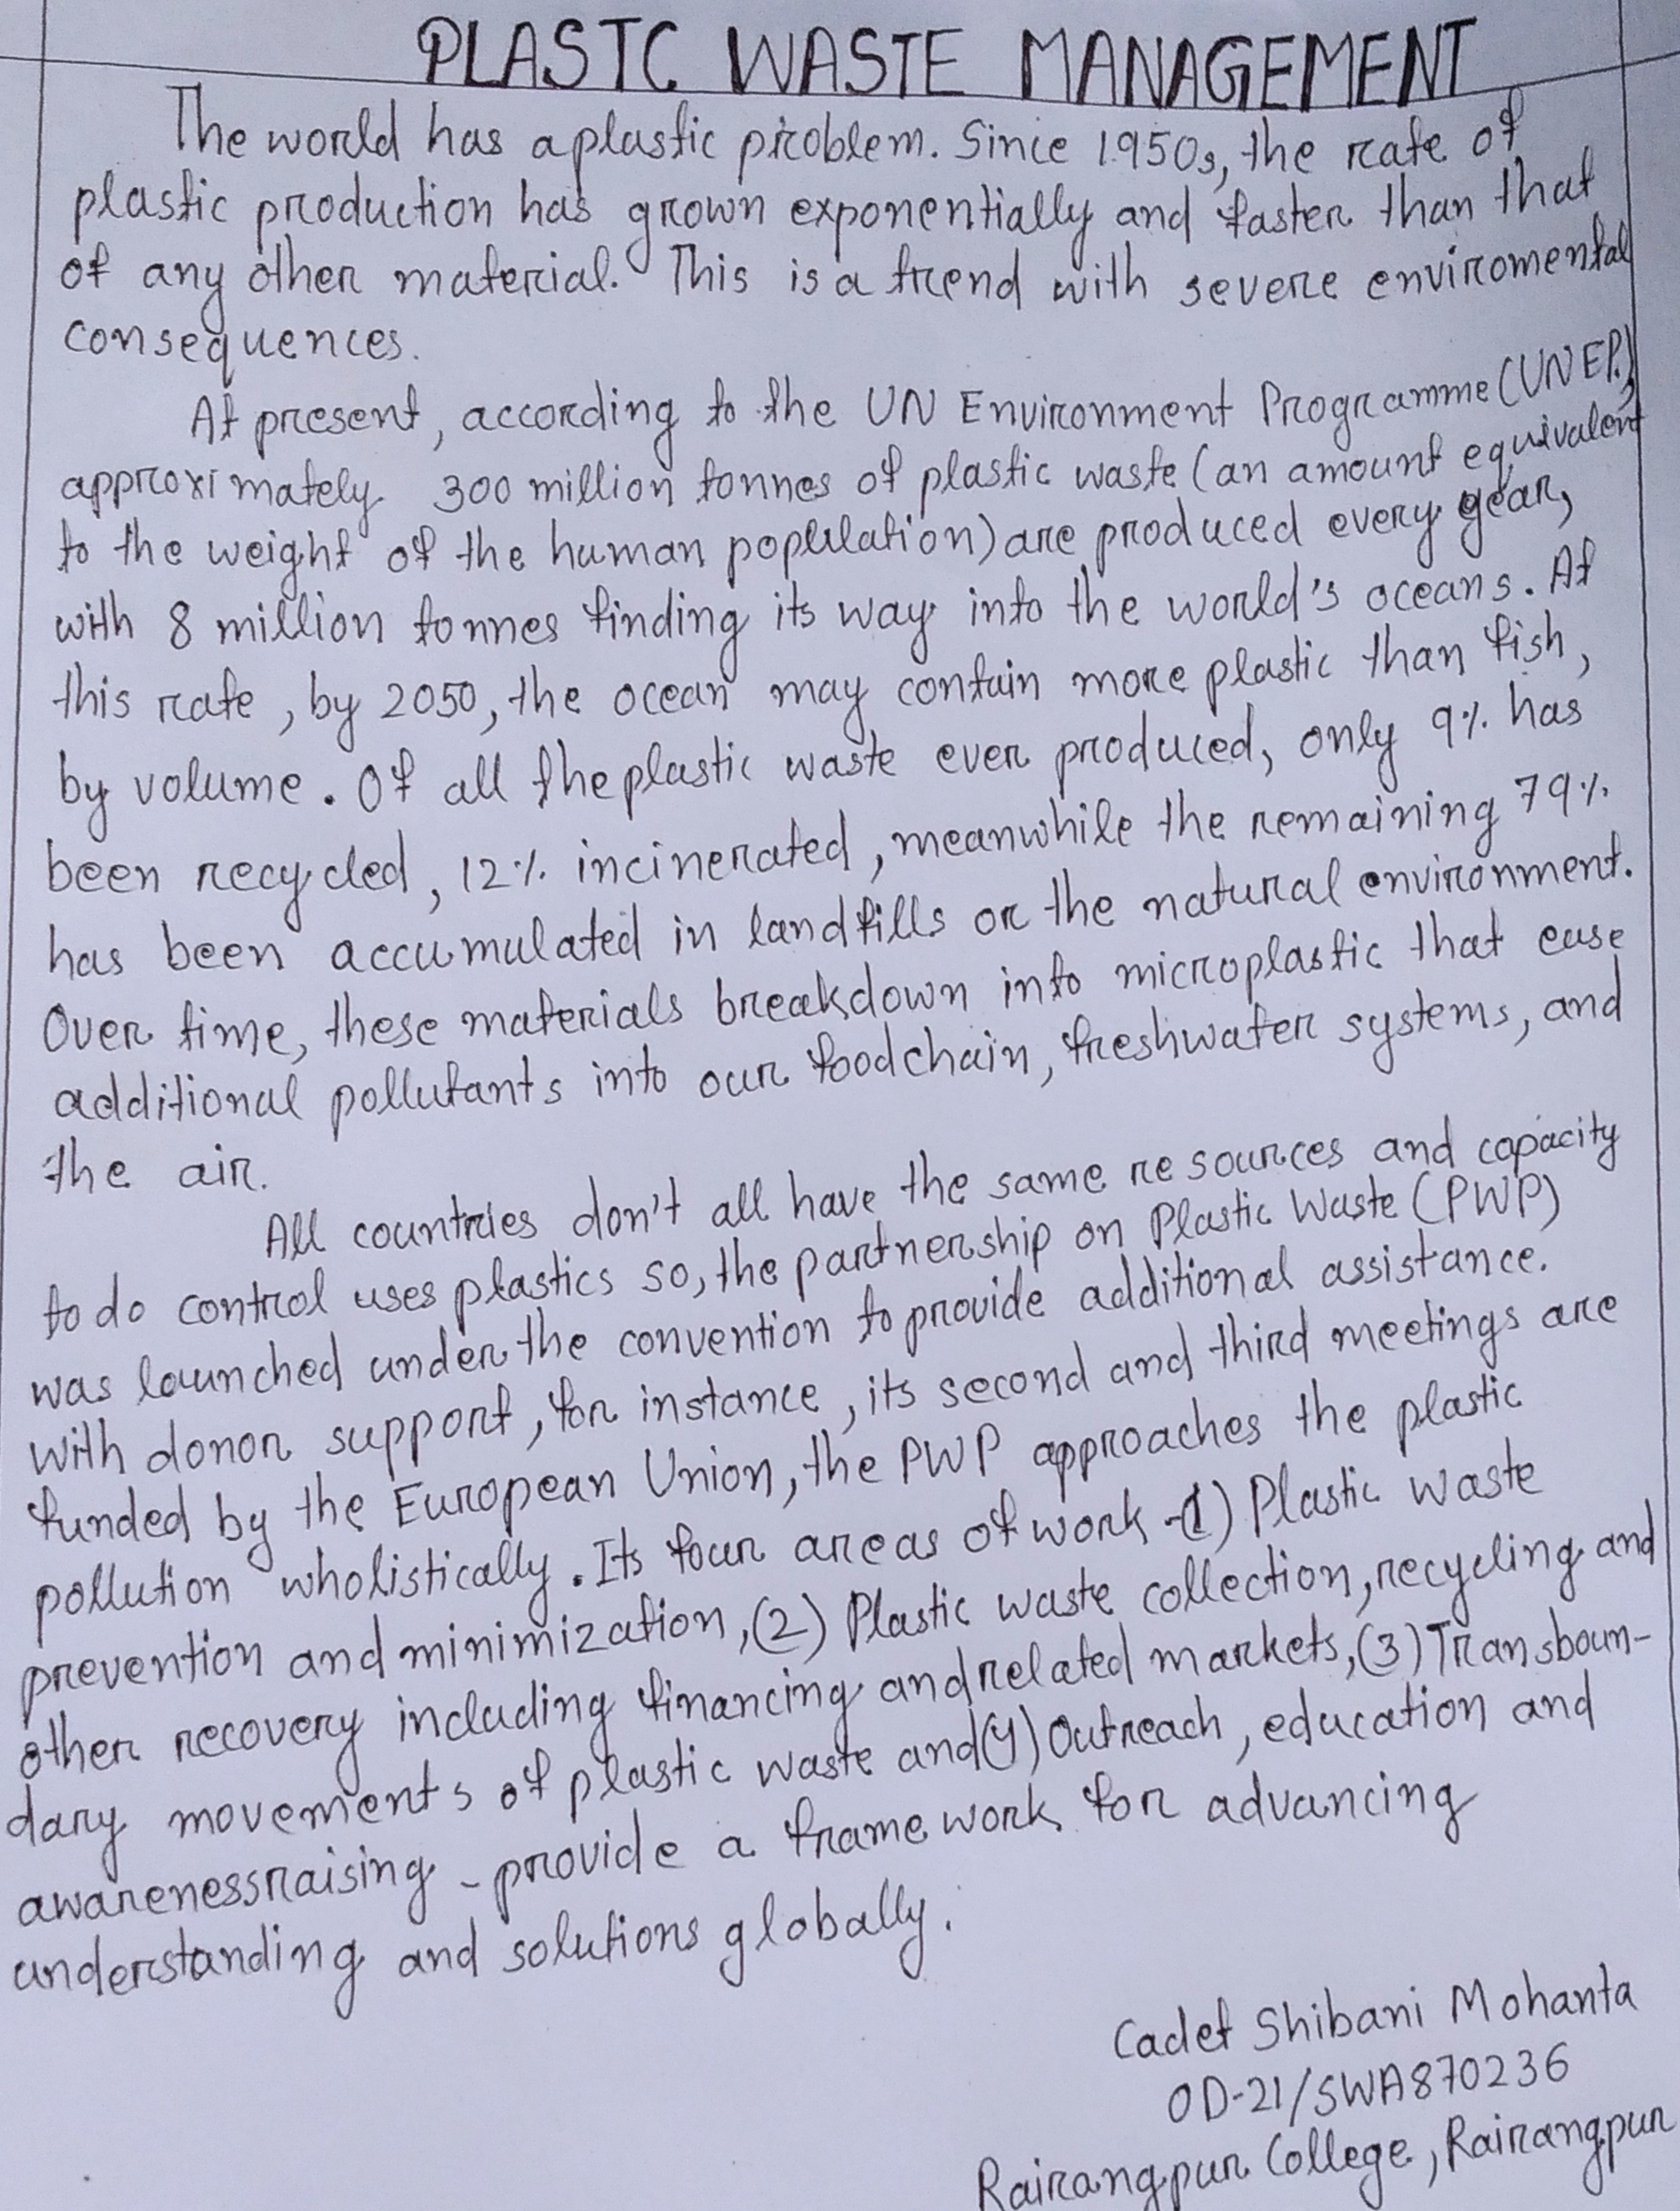 PLASTC WASTE MANAGEMENT
The world has a plastic problem. Since 1950s, the rate of
plastic production has grown exponentially and faster than that
of any other material. This is a trend with severe enviromental
consequences.
At present, according to the UN Environment Programme (UNEP.)
approximately 300 million tonnes of plastic waste (an amount equivalent
to the weight of the human poplulation) are produced every year,
with 8 million tonnes finding its way into the world's oceans. At
this rate, by 2050, the ocean may contain more plastic than fish,
by volume. Of all the plastic waste ever produced, only 9% has
been recycled, 12% incinerated, meanwhile the remaining 79%
has been accumulated in landfills or the natural environment.
Over time, these materials breakdown into microplastic that ease
additional pollutants into our foodchain, freshwater systems, and
the air.
All countries don't all have the same resources and capacity
to do control uses plastics so, the partnership on Plastic Waste (PWP)
was launched under the convention to provide additional assistance.
With donor support, for instance, its second and third meetings are
funded by the European Union, the PWP approaches the plastic
pollution wholistically. Its four areas of work -(1) Plastic waste
prevention and minimization, (2) Plastic waste collection, recycling and
other recovery including financing and related markets, (3) Transboun-
dary movements of plastic waste and (4) Outreach, education and
awarenessraising - provide a framework for advancing
understanding and solutions globally.
Cadet Shibani Mohanta
OD-21/SWA870236
Rairangpur College, Rairangpur